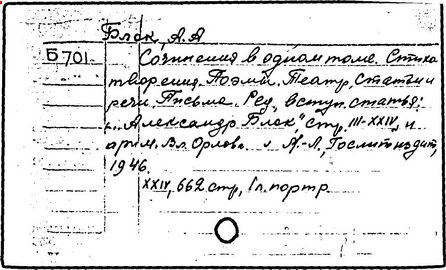 Блок, А.А
Б701
Сочинения в одном томе. Стихо
творения. Поэмы. Театр, Статьи и
речи. Письма. Ред., вступ. статья:
„Александр Блок" стр. III-XXIV, и
прим. Вл. Орлова. М.-Л., Гослитиздат,
1946.
XXIV, 662 стр, 1 л. портр.